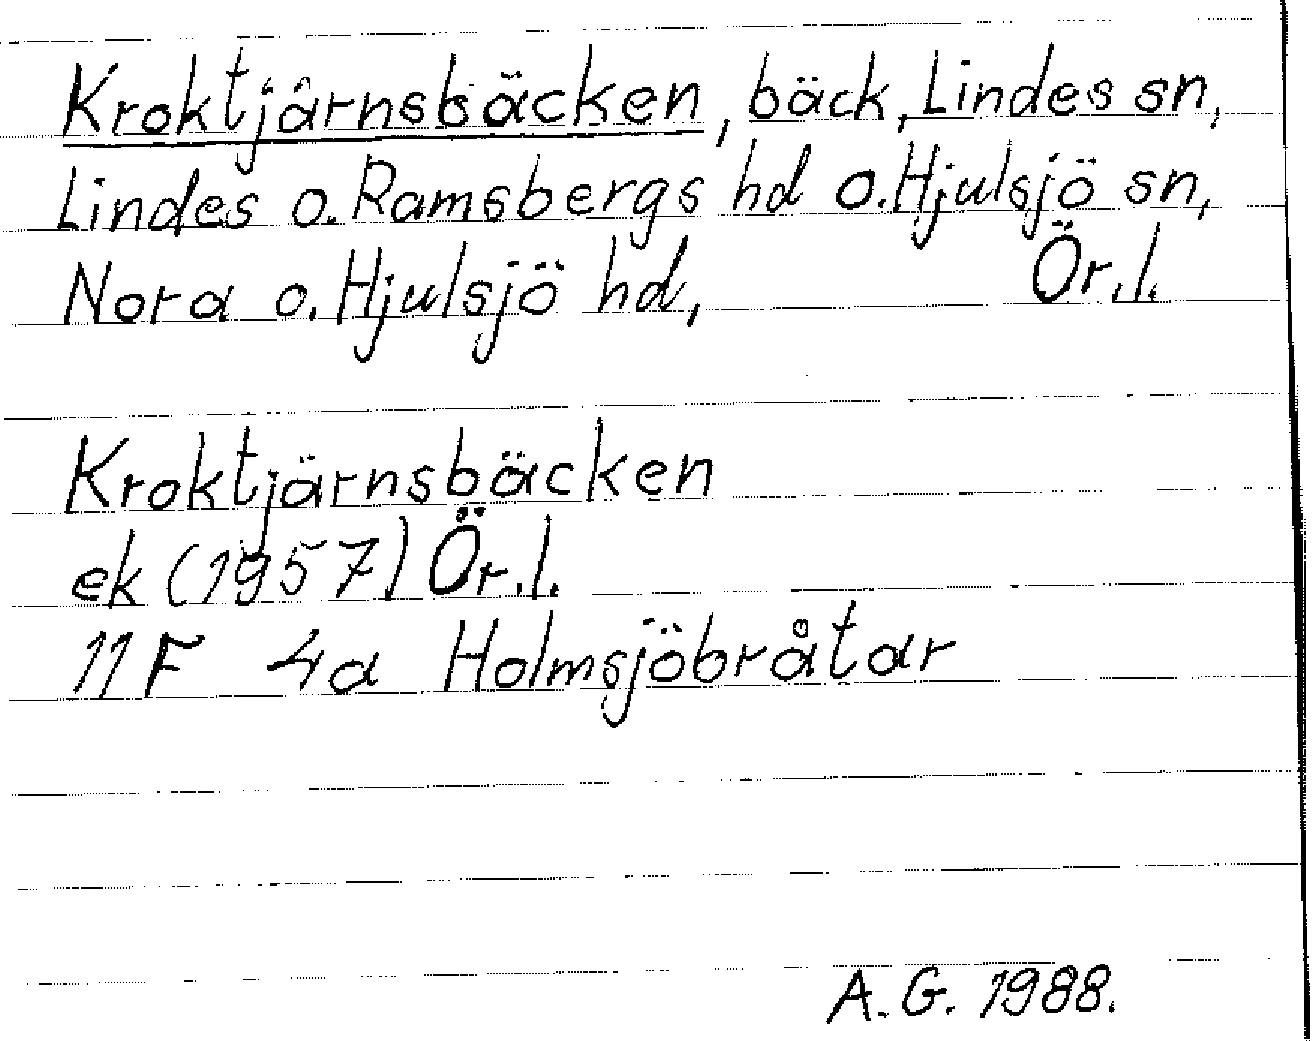 Kroktjärnsbäcken, bäck, Lindes sn,
Lindes o. Ramsbergs hd o. Hjulsjö sn,
Nora o. Hjulsjö hd, Ör.l.
Kroktjärnsbäcken
ek (1957) Ör.l.
11F 4a Holmsjöbråtar
A.G. 1988.